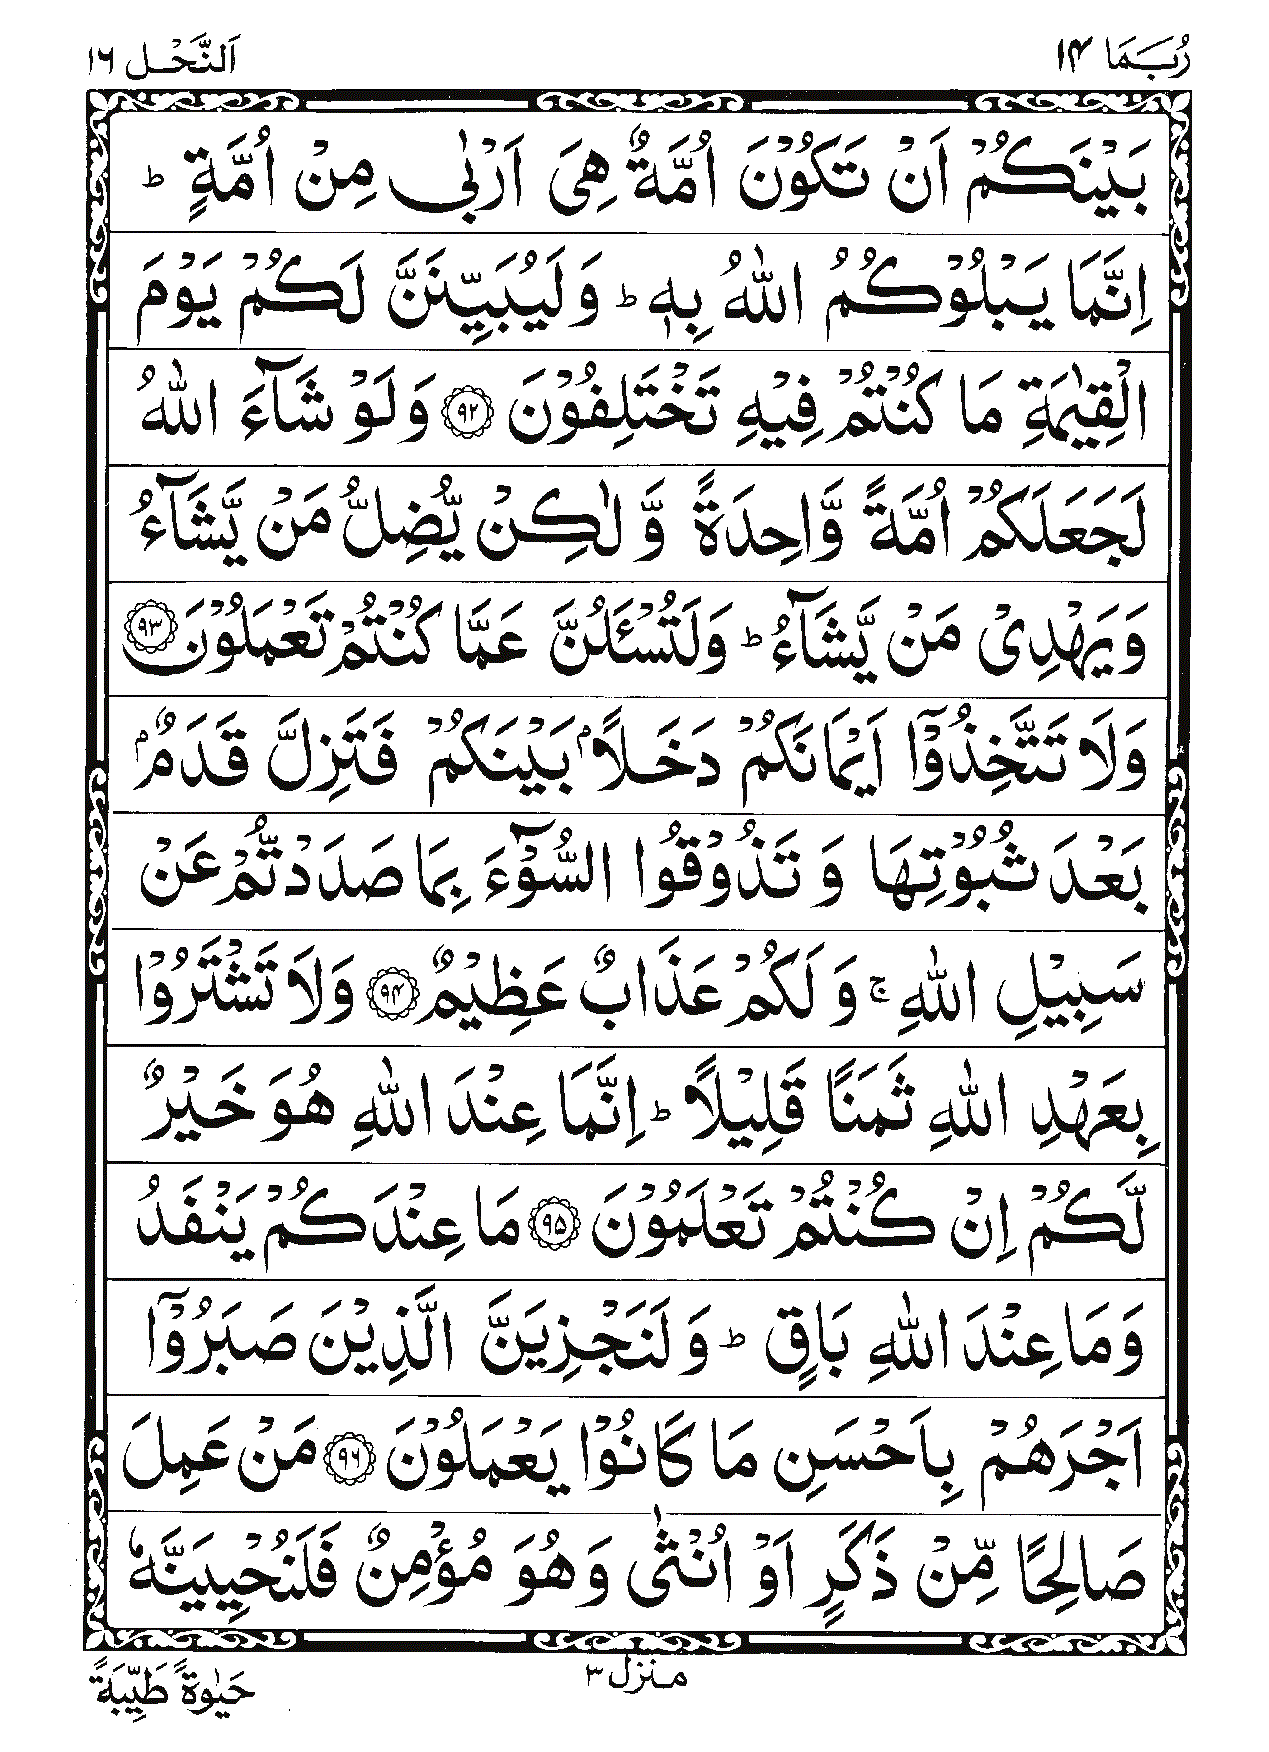 رُبَمَا ١٤
اَلنَّحْل ١٦
بَيْنَكُمْ اَنْ تَكُوْنَ اُمَّةٌ هِىَ اَرْبٰى مِنْ اُمَّةٍ ؕ
اِنَّمَا يَبْلُوْكُمُ اللّٰهُ بِهٖ ؕ وَلَيُبَيِّنَنَّ لَكُمْ يَوْمَ
الْقِيٰمَةِ مَا كُنْتُمْ فِيْهِ تَخْتَلِفُوْنَ ﴿٩٢﴾ وَلَوْ شَآءَ اللّٰهُ
لَجَعَلَكُمْ اُمَّةً وَّاحِدَةً وَّ لٰكِنْ يُّضِلُّ مَنْ يَّشَآءُ
وَيَهْدِىْ مَنْ يَّشَآءُ ؕ وَلَتُسْـَٔلُنَّ عَمَّا كُنْتُمْ تَعْمَلُوْنَ ﴿٩٣﴾
وَلَا تَتَّخِذُوْٓا اَيْمَانَكُمْ دَخَلًاۢ بَيْنَكُمْ فَتَزِلَّ قَدَمٌۢ
بَعْدَ ثُبُوْتِهَا وَ تَذُوْقُوا السُّوْٓءَ بِمَا صَدَدْتُّمْ عَنْ
سَبِيْلِ اللّٰهِ ۚ وَ لَكُمْ عَذَابٌ عَظِيْمٌ ﴿٩٤﴾ وَلَا تَشْتَرُوْا
بِعَهْدِ اللّٰهِ ثَمَنًا قَلِيْلًا ؕ اِنَّمَا عِنْدَ اللّٰهِ هُوَ خَيْرٌ
لَّكُمْ اِنْ كُنْتُمْ تَعْلَمُوْنَ ﴿٩٥﴾ مَا عِنْدَكُمْ يَنْفَدُ
وَمَا عِنْدَ اللّٰهِ بَاقٍ ؕ وَ لَنَجْزِيَنَّ الَّذِيْنَ صَبَرُوْٓا
اَجْرَهُمْ بِاَحْسَنِ مَا كَانُوْا يَعْمَلُوْنَ ﴿٩٦﴾ مَنْ عَمِلَ
صَالِحًا مِّنْ ذَكَرٍ اَوْ اُنْثٰى وَهُوَ مُؤْمِنٌ فَلَنُحْيِيَنَّهٗ
منزل ٣
حَيٰوةً طَيِّبَةً